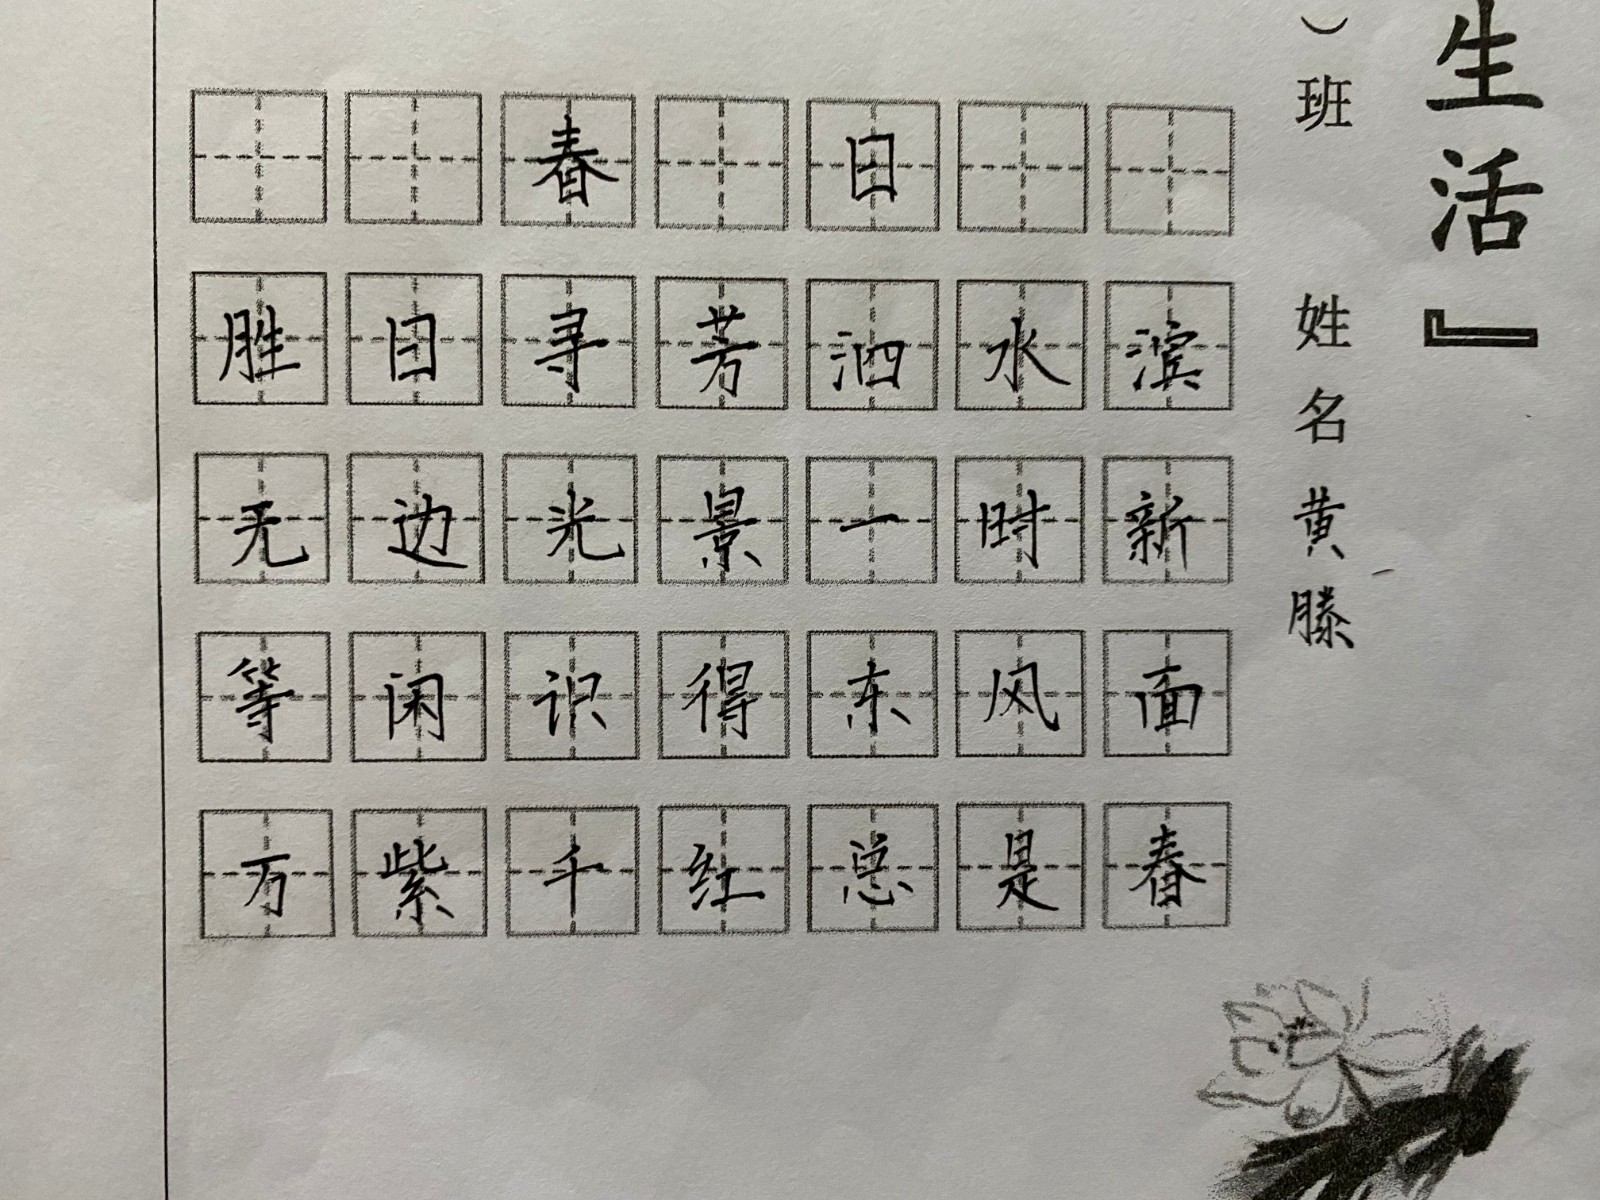 春日
胜日寻芳泗水滨
无边光景一时新
等闲识得东风面
万紫千红总是春
）班 姓名黄滕
生活』